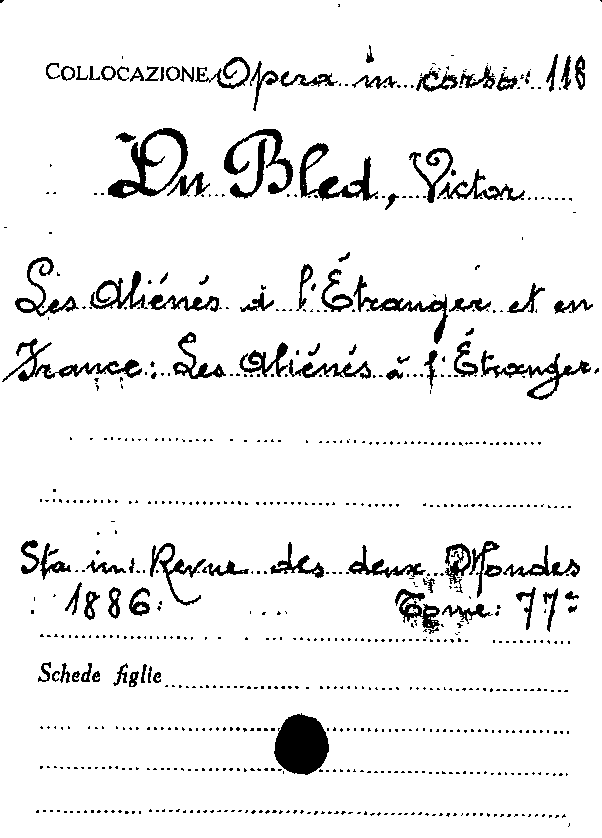 COLLOCAZIONE Opera in corso 118
Du Bled, Victor
Les Aliénés à l'Étranger et en
France: Les Aliénés à l'Étranger.
Sta in: Revue des deux Mondes
1886. Tome: 77°
Schede figlie